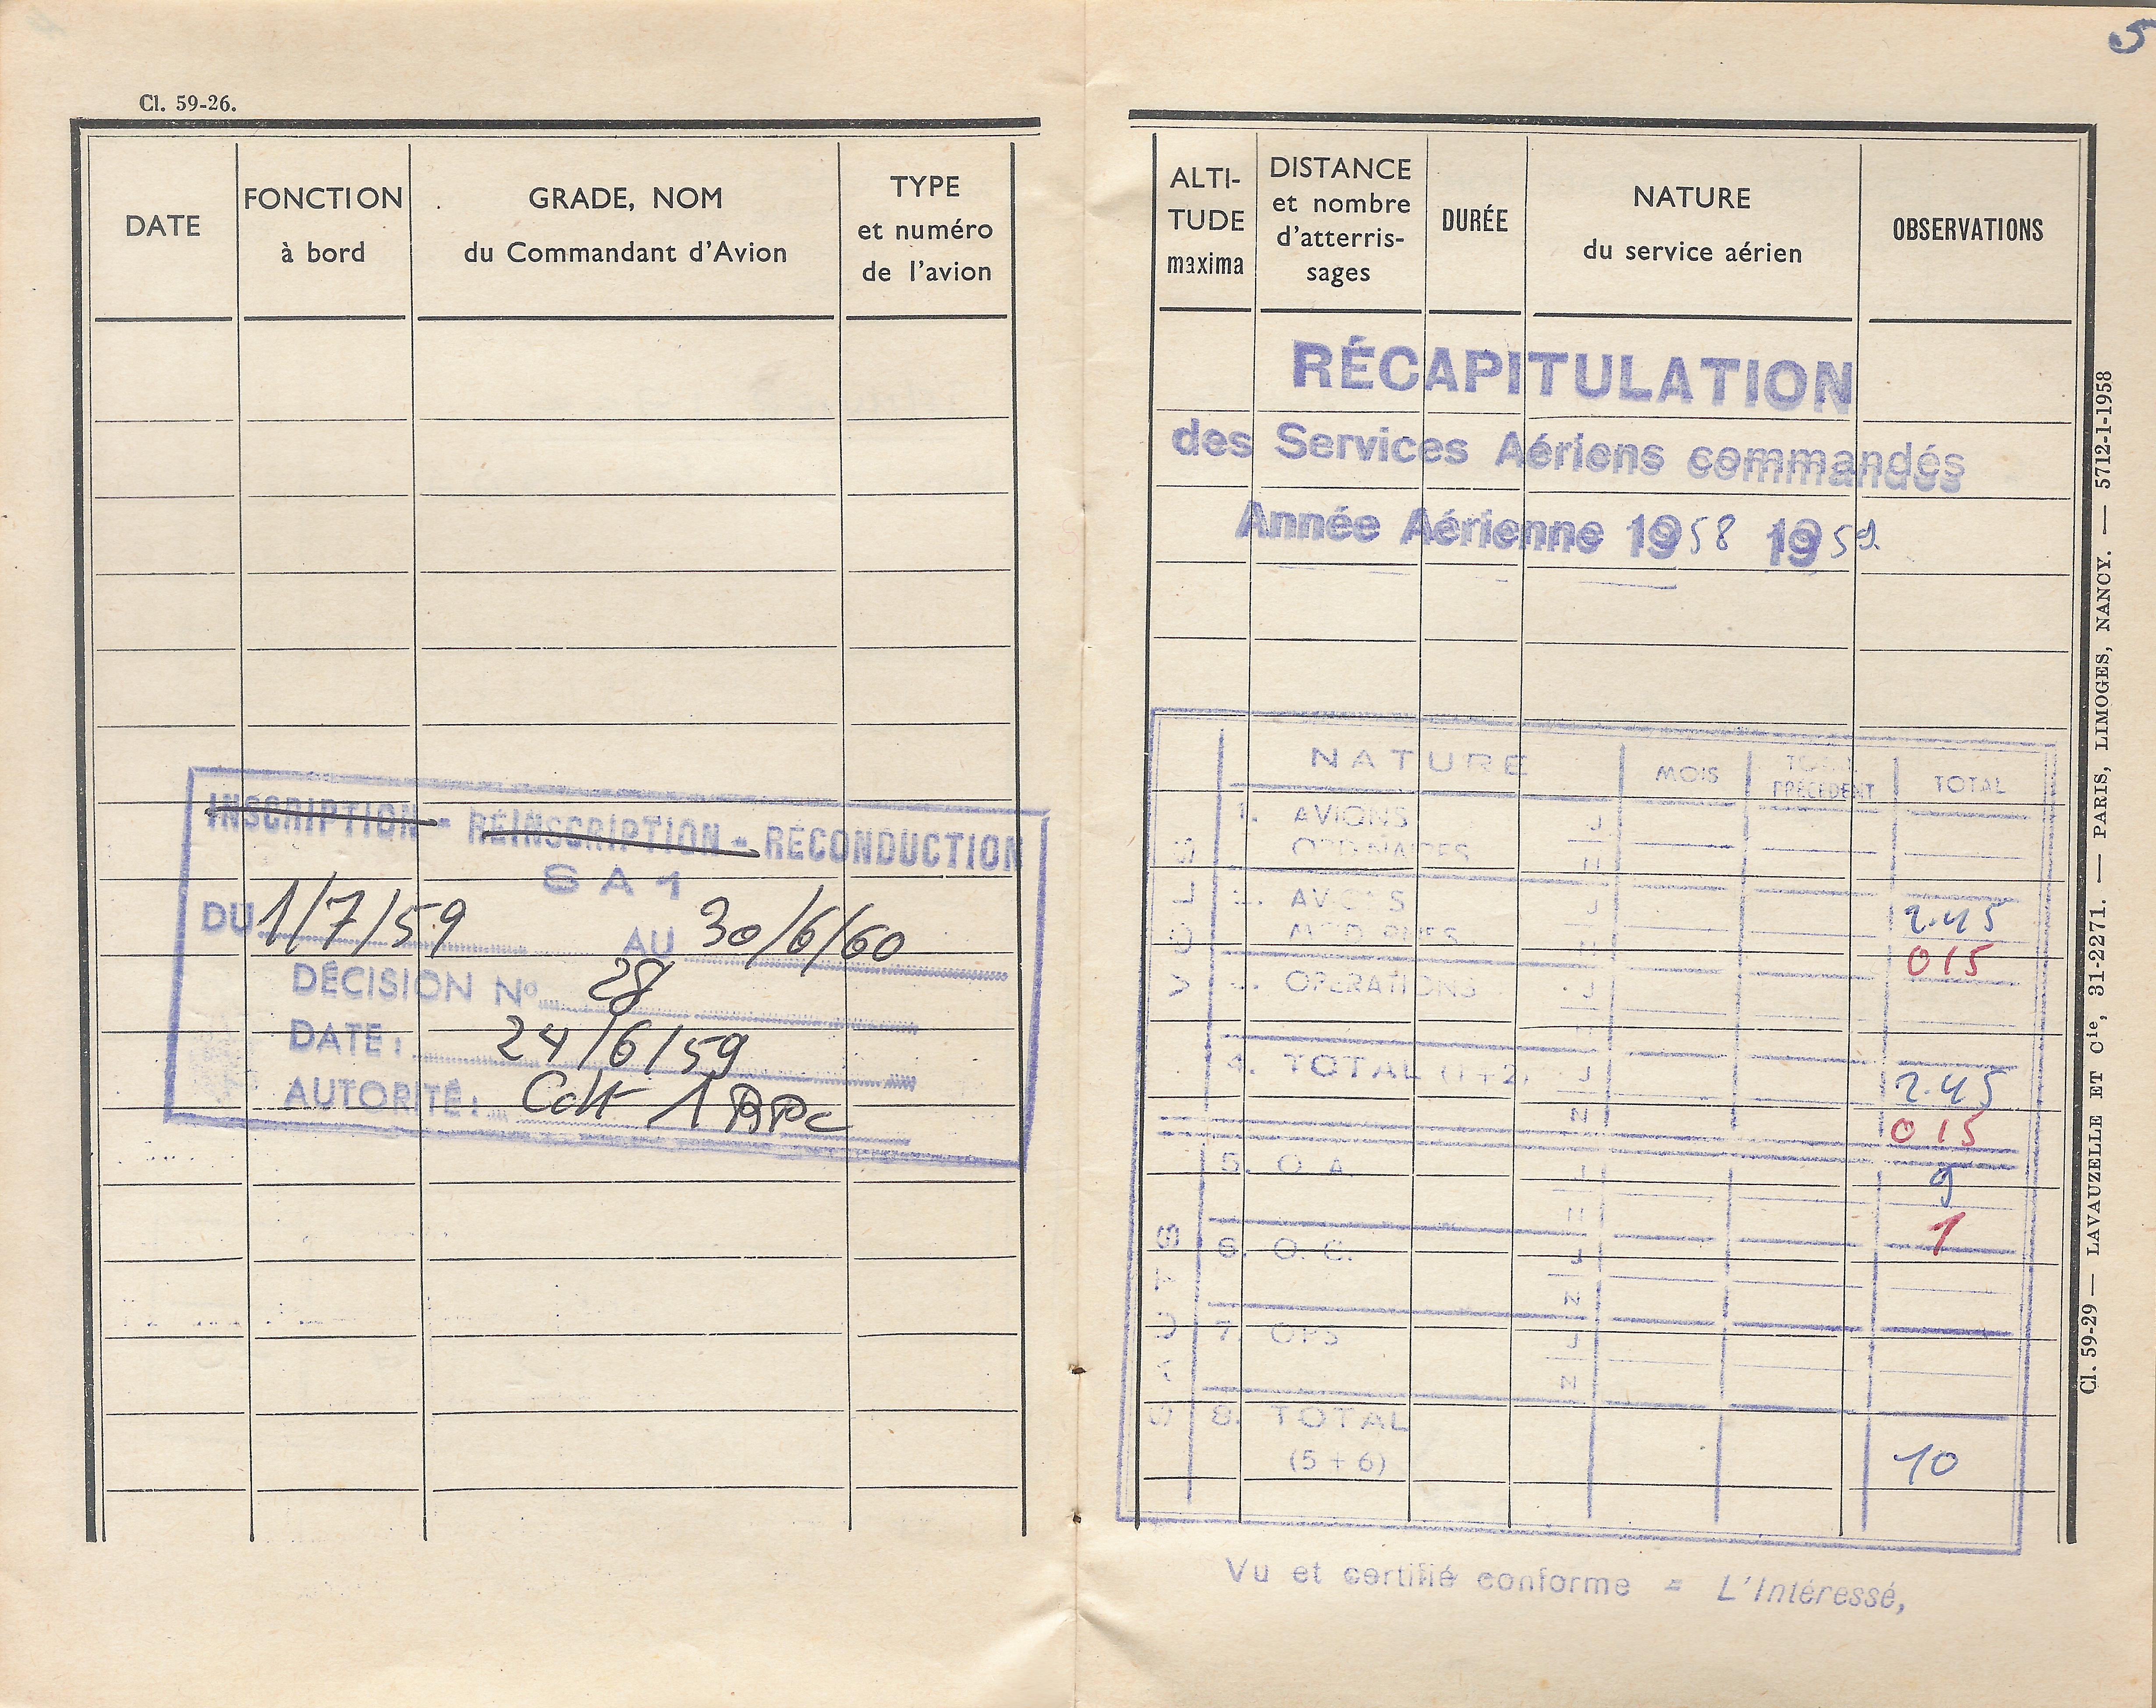 5
Cl. 59-26.
DATE
FONCTION
à bord
GRADE, NOM
du Commandant d'Avion
TYPE
et numéro
de l'avion
INSCRIPTION - RÉINSCRIPTION - RÉCONDUCTION
SA1
DU 1/7/59 AU 30/6/60
DÉCISION Nº 28
DATE : 24/6/59
AUTORITÉ : Cdt 1
ALTI-
TUDE
maxima
DISTANCE
et nombre
d'atterris-
sages
DURÉE
NATURE
du service aérien
OBSERVATIONS
RÉCAPITULATION
des Services Aériens commandés
Année Aérienne 1958 1959
NATURE MOIS TOTAL PRÉCÉDENT TOTAL
VOLS
1. AVIONS J
ORDINAIRES N
2. AVIONS J 2.45
MODERNES N 015
3. OPERATIONS J
4. TOTAL (1+2) J 2.45
N 015
SAUTS
5. O.A. J 9
N 1
6. O.C. J
N
7. OPS J
N
8. TOTAL
(5 + 6) 10
Vu et certifié conforme = L'Intéressé,
Cl. 59-29 — LAVAUZELLE ET Cie, 31-2271. — PARIS, LIMOGES, NANCY. — 5712-1-1958